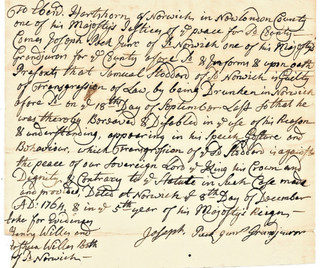 To Ebenr Hartshorn of Norwich in New London County
one of his Majestys Justices of ye peace for sd County
Comes Joseph Peck Junr of sd Norwich one of his Majestys
Grandjurors for ye County afore sd & Informs & upon oath
Presents that Samuel Hobbard of sd Norwich is Guilty
of Transgression of Law, by being Drunken in Norwich
afore sd on ye 18th Day of September Last So that he
was thereby Bereaved & Disabled in ye use of his Reason
& understanding, appearing in his Speech, Gesture and
Behaviour, which Transgression of ye sd Hobbard is against
the peace of our Sovereign Lord ye King his Crown and
Dignity & Contrary to ye Statute in Such Case made
and provided, Dated at Norwich ye 8th Day of December
AD: 1764, & in ye 5th year of his Majestys Reign
take for Evidence
Henry Willes and
Joshua Willes Both
of sd Norwich
Joseph Peck junr Grandjuror